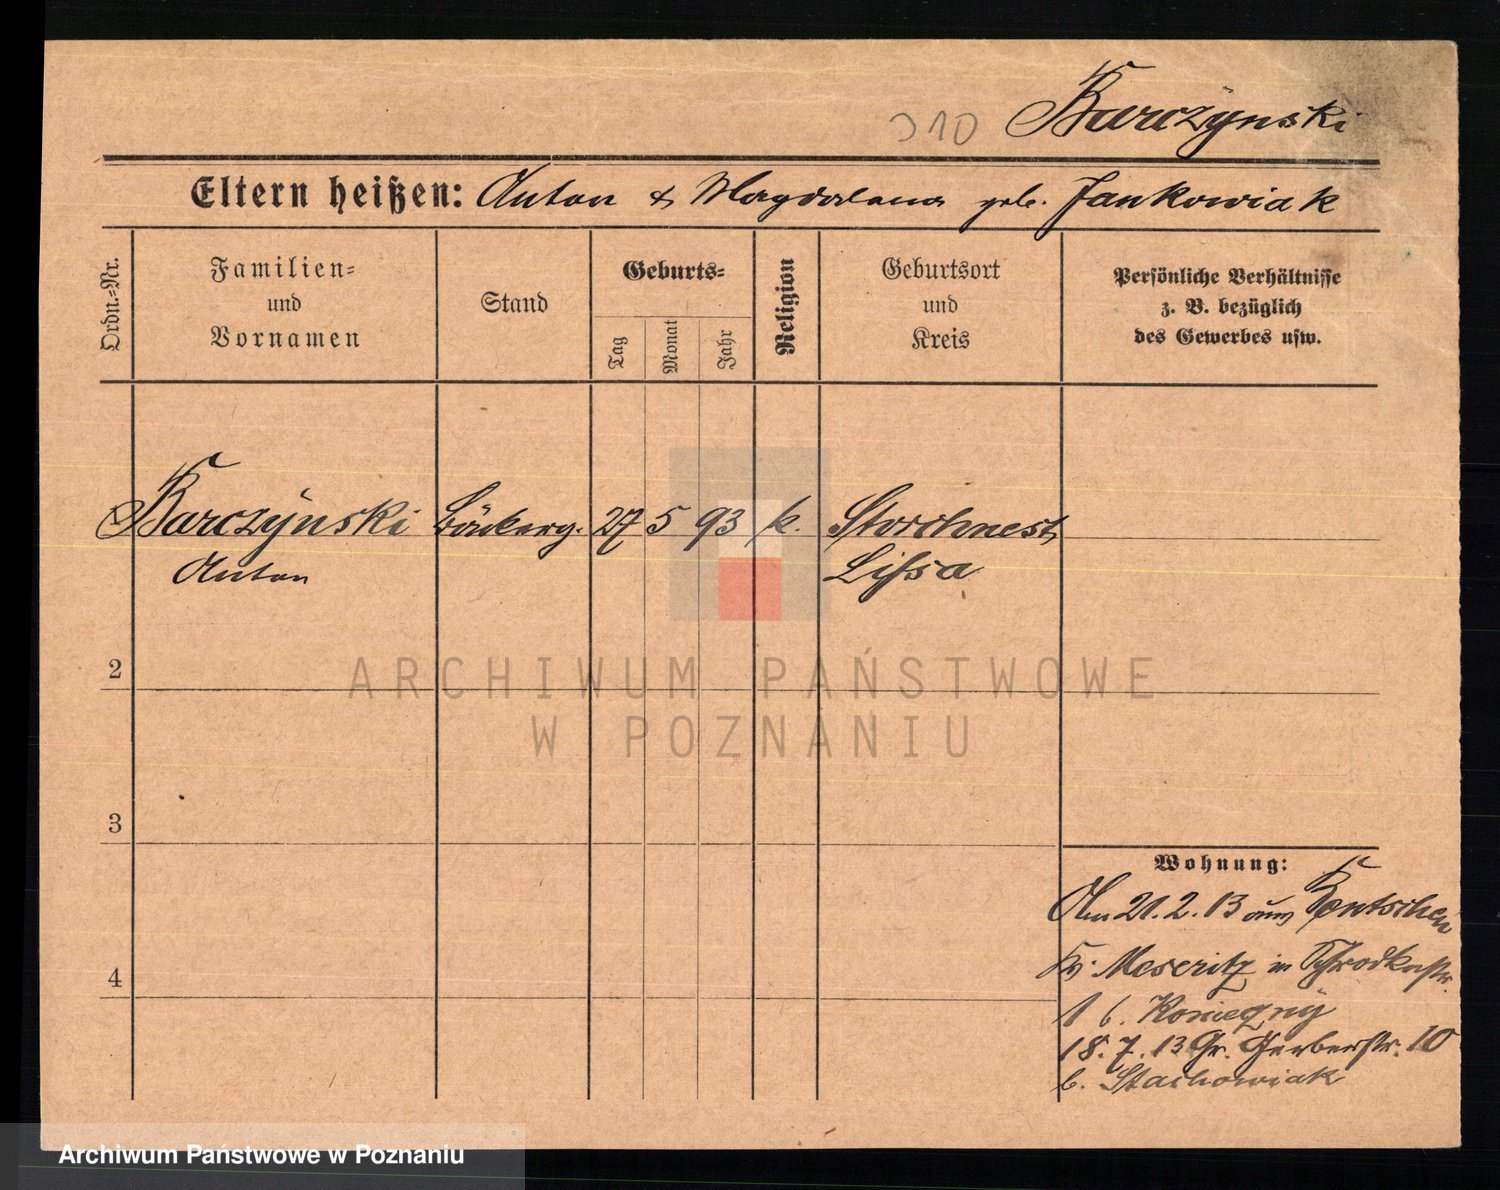 310 Karczynski
Eltern heißen: Anton & Magdalena geb. Jankowiak
Ordn.=Nr.
Familien=
und
Vornamen
Stand
Geburts=
Tag
Monat
Jahr
Religion
Geburtsort
und
Kreis
Persönliche Verhältnisse
z. B. bezüglich
des Gewerbes usw.
1 Karczynski Bäckerg. 27 5 93 k. Storchnest
Anton Lissa
2
3
4
Wohnung:
Am 21.2.13 aus Bentschen
Kr. Meseritz in Schrodkastr.
1 b. Koniegny
18.7.13 Gr. Gerberstr. 10
b. Stachowiak
ARCHIWUM PAŃSTWOWE
W POZNANIU
Archiwum Państwowe w Poznaniu